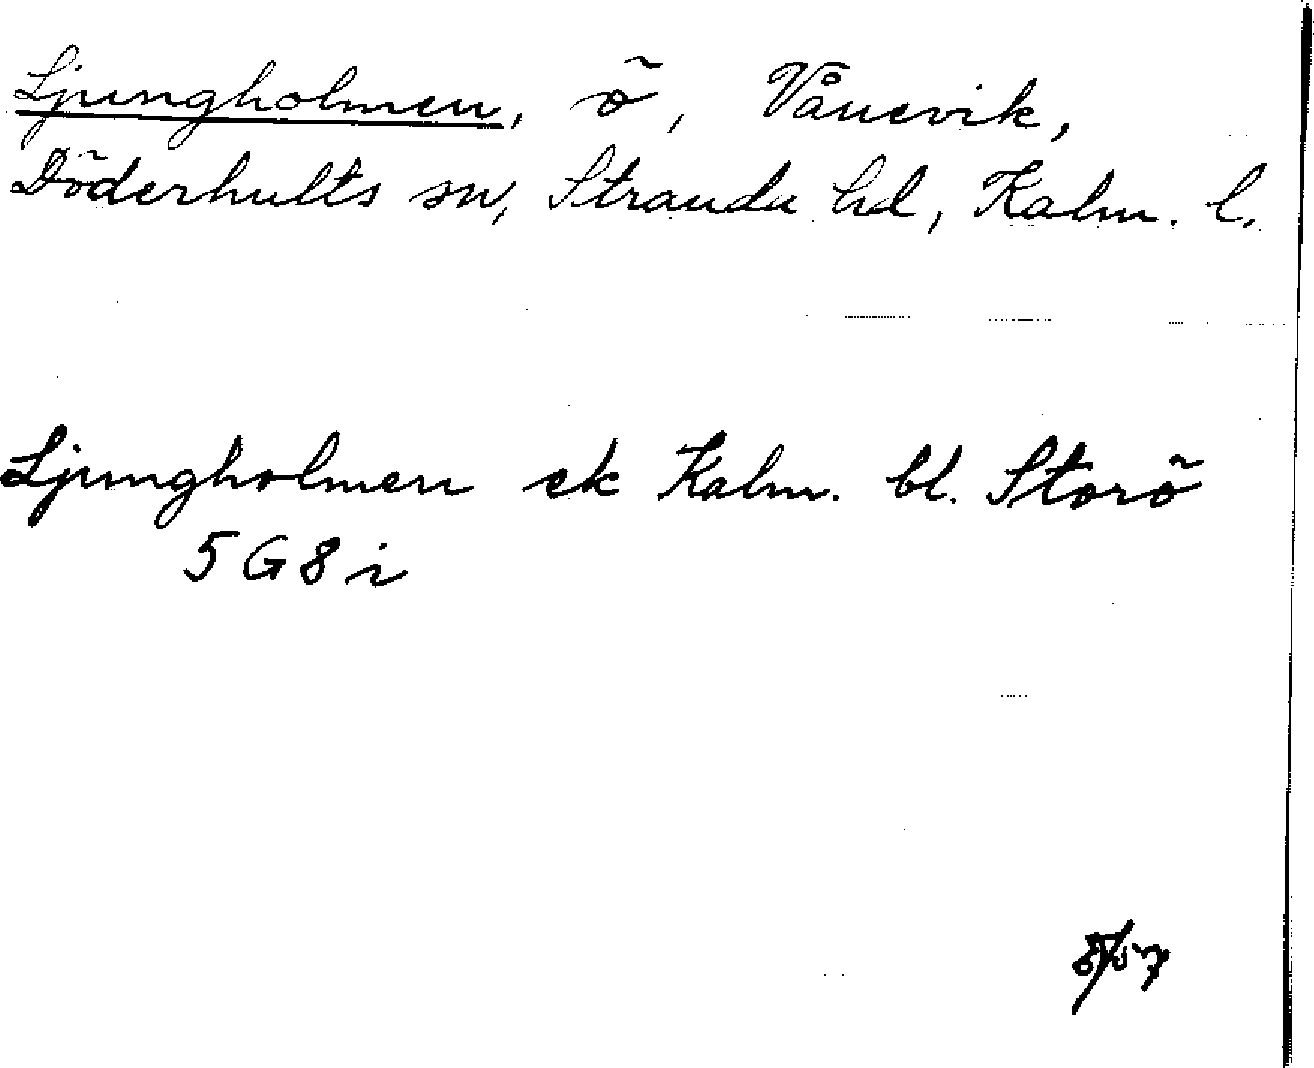 Ljungholmen, ö, Vånevik,
Döderhults sn, Stranda hd, Kalm. l.
Ljungholmen ek Kalm. bl. Storö
5 G 8 i